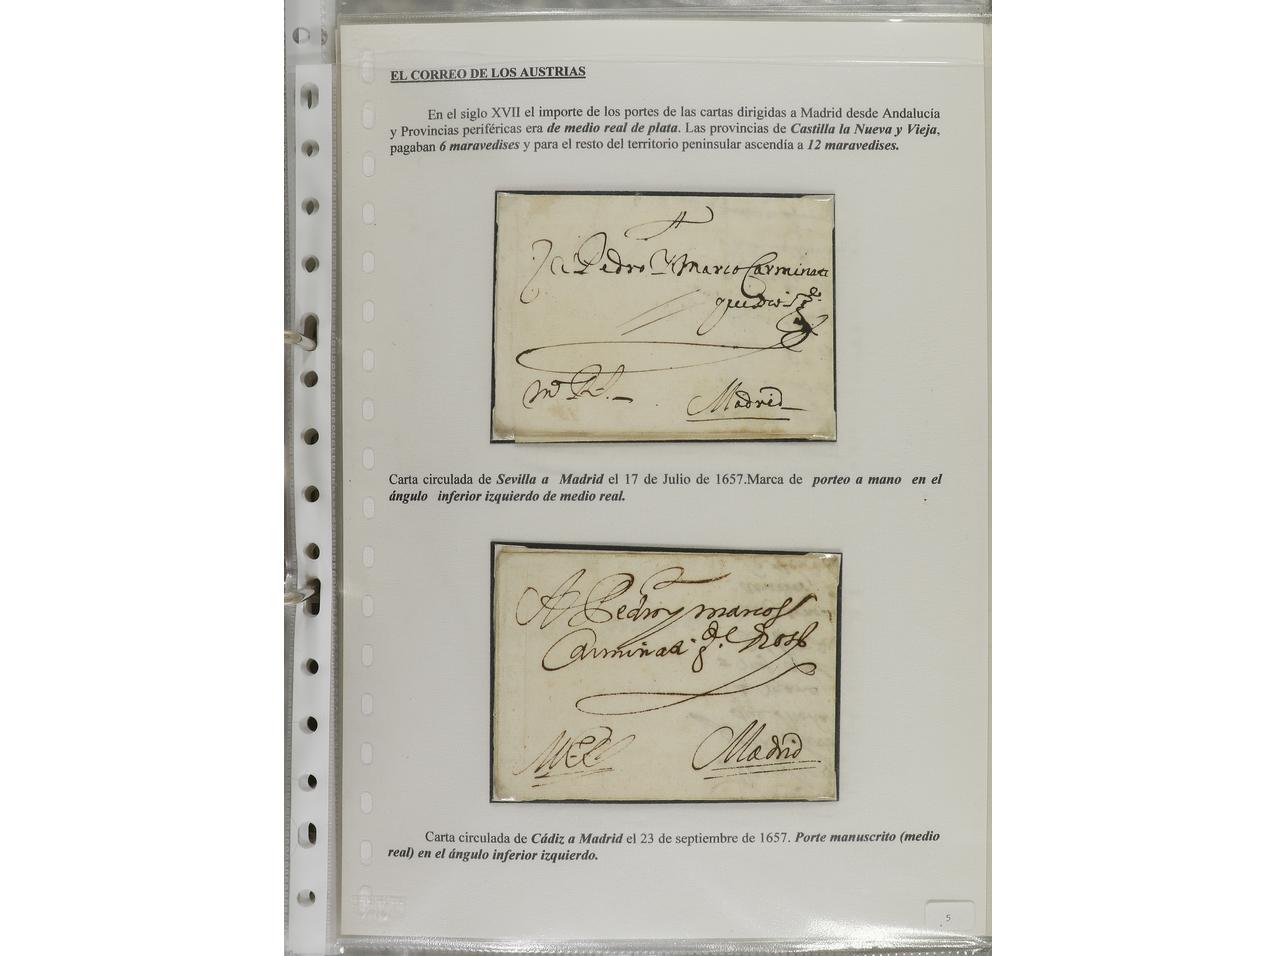 EL CORREO DE LOS AUSTRIAS
En el siglo XVII el importe de los portes de las cartas dirigidas a Madrid desde Andalucía
y Provincias periféricas era de medio real de plata. Las provincias de Castilla la Nueva y Vieja,
pagaban 6 maravedises y para el resto del territorio peninsular ascendía a 12 maravedises.
Pedro Y Marco Carminati
Madrid
Carta circulada de Sevilla a Madrid el 17 de Julio de 1657.Marca de porteo a mano en el
ángulo inferior izquierdo de medio real.
A Pedro y marcos
Carminati
Madrid
Carta circulada de Cádiz a Madrid el 23 de septiembre de 1657. Porte manuscrito (medio
real) en el ángulo inferior izquierdo.
5